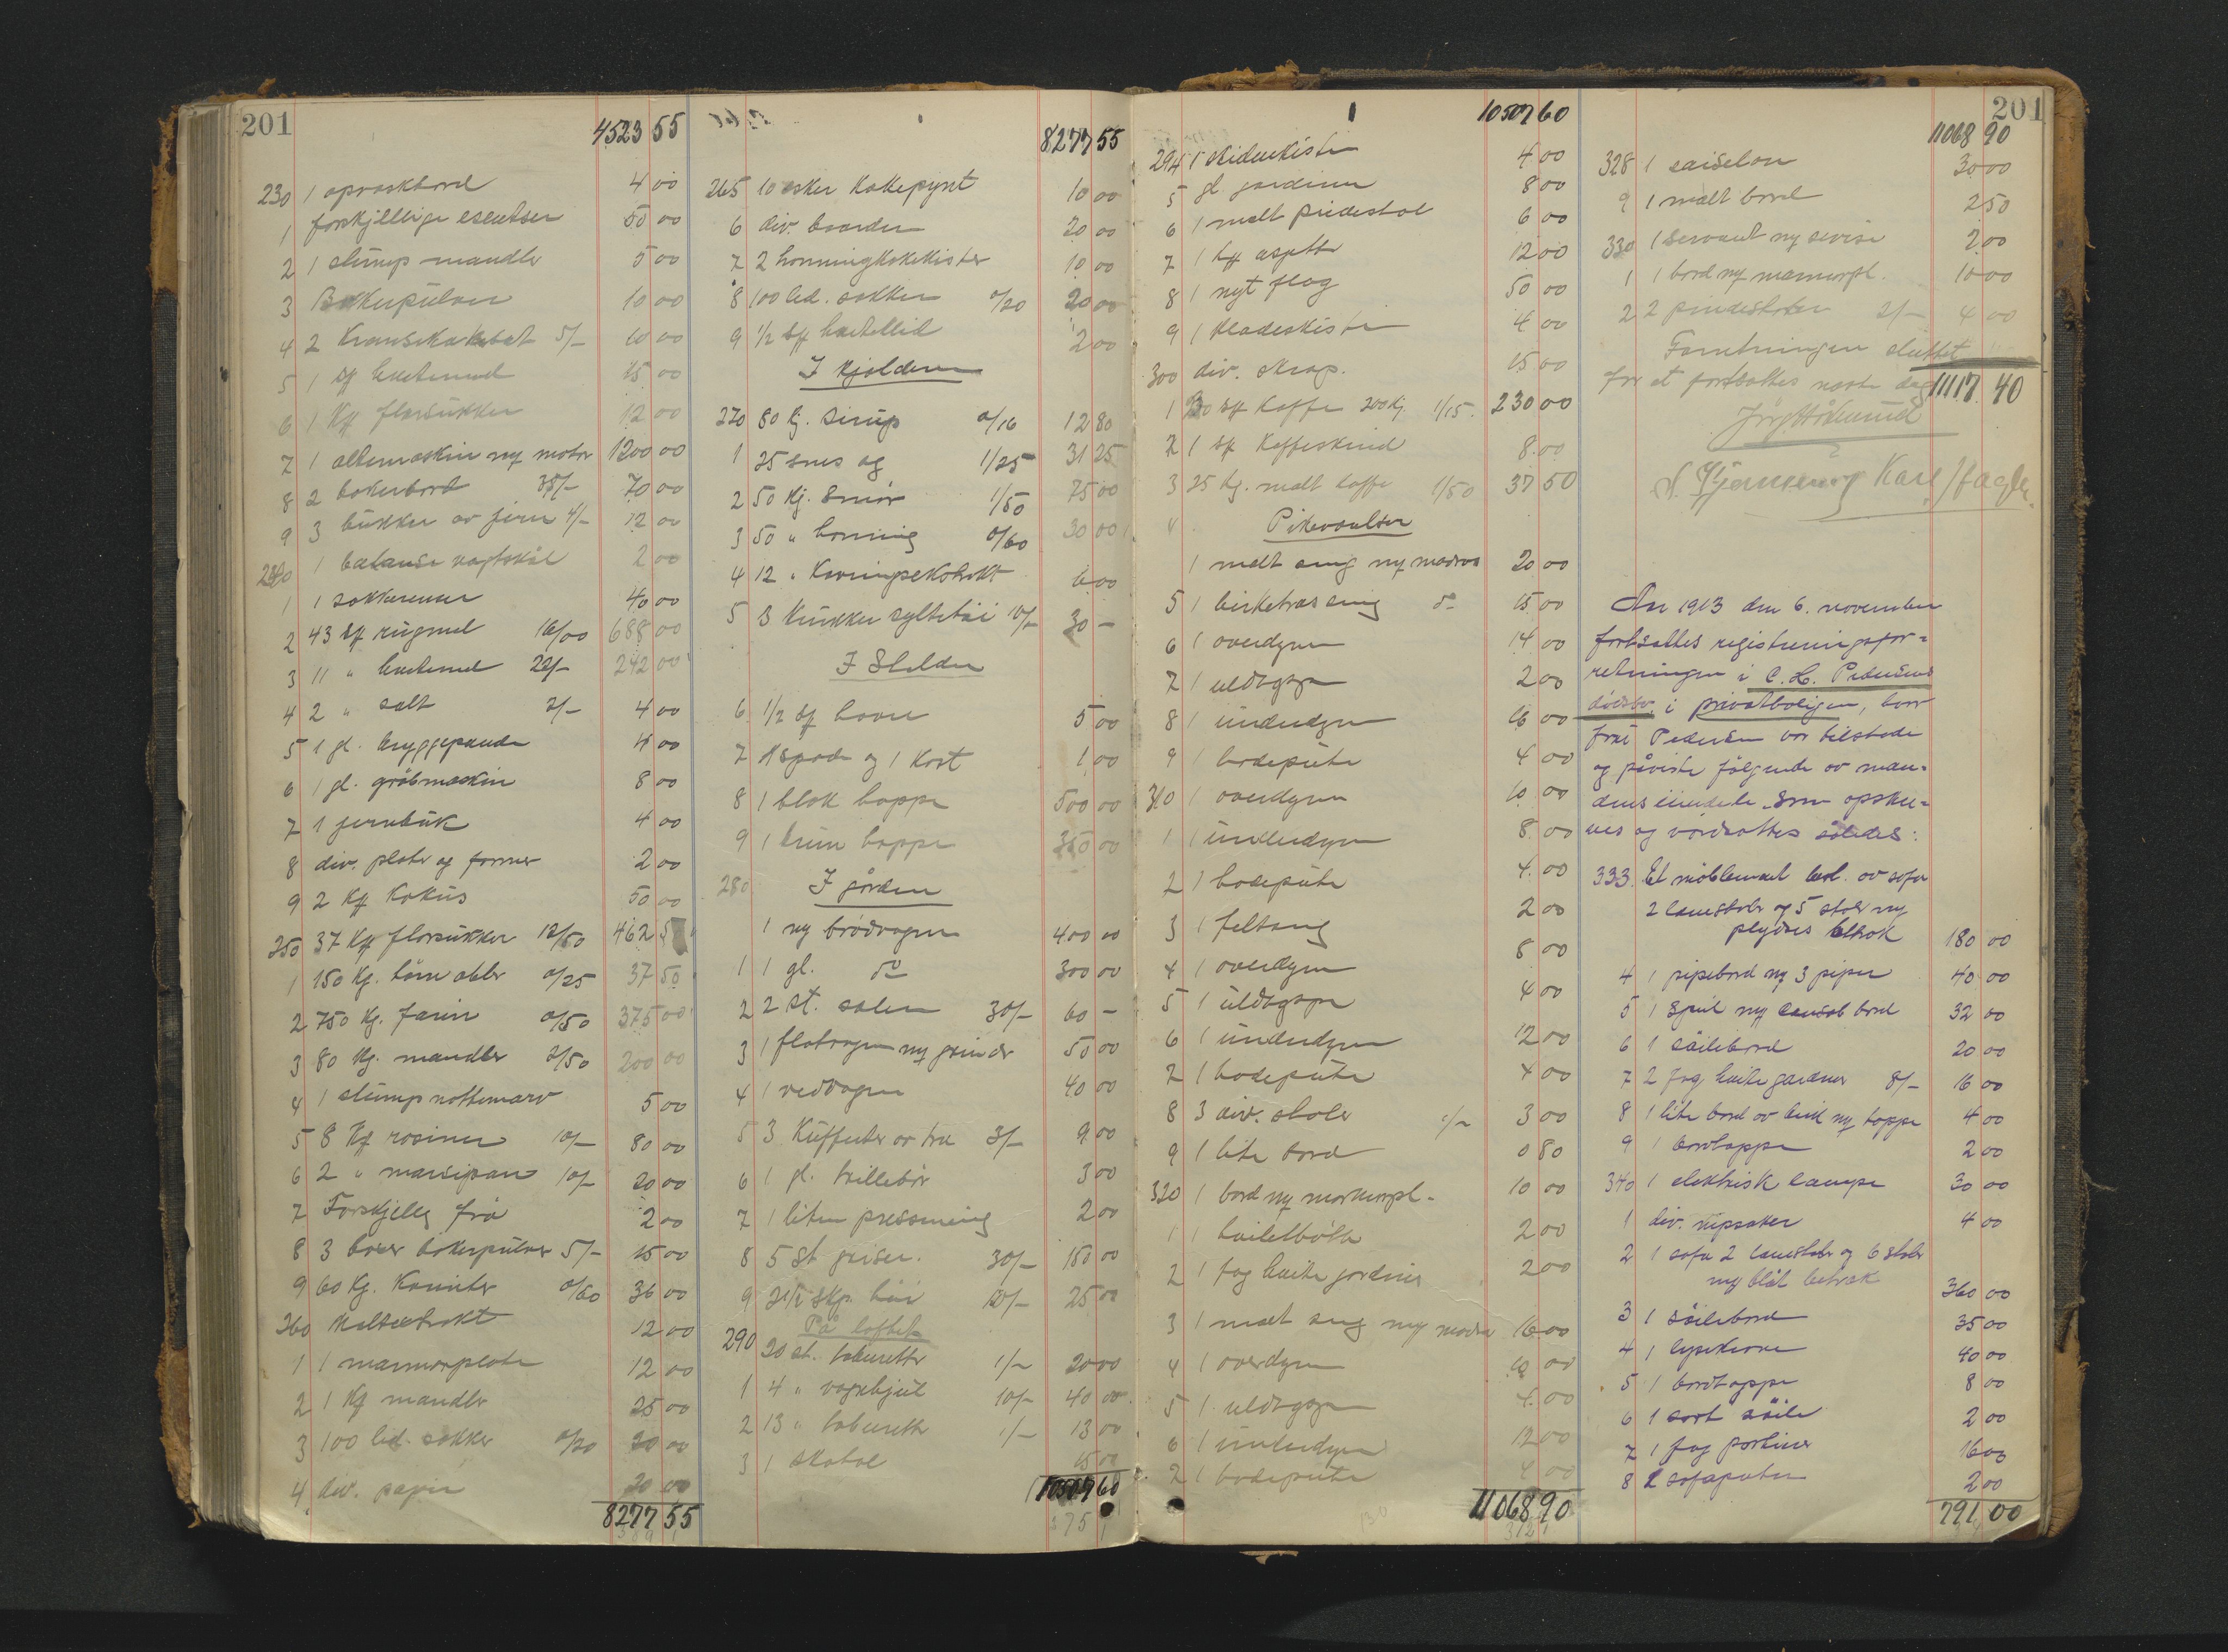 201
4523 55
230 1 opvaskbord 4 00
1 forskjellige esentser 50 00
2 1 slump mandler 5 00
3 Bakerpulver 10 00
4 2 Kransekakebot 5/- 10 00
5 1 sk hvetemel 25 00
6 1 Kg florsukker 12 00
7 1 eltemaskin mg motor 1200 00
8 2 bakerbord 35/- 70 00
9 3 bukker av jern 4/- 12 00
240 1 balanse vegtskål 2 00
1 1 sokkerenser 40 00
2 43 sk rugmel 16/00 688 00
3 11 " hvetemel 22/- 242 00
4 2 " salt 2/- 4 00
5 1 gl. bryggepande 4 00
6 1 gl. gröbmaskin 8 00
7 1 jernbuk 4 00
8 div. plater og former 2 00
9 2 Kg Kokus 50 00
250 37 Kg florsukker 12/50 462 5
1 150 Kg. törre æbler 0/25 37 50
2 750 Kg. farin 0/50 375 00
3 80 Kg. mandler 2/50 200 00
4 1 slump nøttemarv 5 00
5 8 Kg rosiner 10/- 80 00
6 2 " marsipan 10/- 20 00
7 Forskjellig frö 2 00
8 3 boxer bakerpulver 5/- 15 00
9 60 Kg. Korinter 0/60 36 00
260 Maltextrakt 12 00
1 1 marmorplate 12 00
2 1 Kg mandler 25 00
3 100 led. sekker 0/20 20 00
4 div. papir 20 00
8277 55
8277 55
265 10 esker Kakepynt 10 00
6 div. boarder 20 00
7 2 honningkakekister 10 00
8 100 led. sekker 0/20 20 00
9 1/2 sk 2 00
I kjelderen
270 80 Kg. sirup 0/16 12 80
1 25 snes eg 1/25 31 25
2 50 Kg. Smör 1/50 75 00
3 50 " honning 0/60 30 00
4 12 " Kavringsekstrakt 6 00
5 3 Krukker syltetöi 10/- 30 -
I Stalden
6 1/2 sk havre 5 00
7 1 spade og 1 Kost 1 00
8 1 blak hoppe 500 00
9 1 brun hoppe 350 00
280 I gården
1 ny brödvogn 400 00
1 1 gl. do 300 00
2 2 st. seler 30/- 60 -
3 1 flatvogn mg grinder 50 00
4 1 vedvogn 40 00
5 3 Kufferter av træ 3/- 9 00
6 1 gl. trillebör 3 00
7 1 liten pressening 2 00
8 5 st griser. 30/- 150 00
9 2 1/2 skp. höi 10/- 25 00
På loftet
290 20 st. taburetter 1/- 20 00
1 4 " vognhjul 10/- 40 00
2 13 " taburetter 1/- 13 00
3 1 skabal 15 00
10507 60
10507 60
294 1 skidenkiste 4 00
5 gl. gardiner 8 00
6 1 malt pindestol 6 00
7 1 12 00
8 1 nyt flag 50 00
9 1 kladeskiste 4 00
300 div. skrap. 15 00
1 sk kaffe 200 Kg. 1/15. 230 00
2 1 sk Kaffeskind 8 00
3 25 Kg. malt kaffe 1/50 37 50
4 Pikeværelser
1 malt seng mg madras 20 00
5 1 birketræs seng do 15 00
6 1 overdyne 14 00
7 1 uldteppe 2 00
8 1 underdyne 16 00
9 1 hodepute 4 00
310 1 overdyne 10 00
1 1 underdyne 8 00
2 1 hodepute 4 00
3 1 feltseng 2 00
4 1 overdyne 8 00
5 1 uldteppe 4 00
6 1 underdyne 12 00
7 1 hodepute 4 00
8 3 div. stoler 1/- 3 00
9 1 lite bord 0 80
320 1 bord mg marmorpl. 10 00
1 1 toiletbötte 2 00
2 1 fag hvite gardiner 2 00
3 1 malt seng mg madra 16 00
4 1 overdyne 10 00
5 1 uldteppe 4 00
6 1 underdyne 12 00
7 1 hodepute 4 00
11068 90
201
11068 90
328 1 saiselon 30 00
9 1 malt bord 2 50
330 1 Servant mg servise 2 00
1 1 bord mg marmorpl. 10 00
2 2 pindestoler 2/- 4 00
Forretningen sluttet
for at fortsættes næste dag
11117 40
Kare
An 1913 den 6. november
fortsattes registreringsfor-
retningen i C. L. Pedersens
dödsbo, i privatboligen, hvor
fru Pedersen var tilstede
og påviste fölgende av man-
dens eiendele som opskre-
ves og værdsattes således:
333. Et möblement best. av sofa
2 lænestoler og 5 stoler mg
plydses betræk 180 00
4 1 pipebord mg 3 piper 40 00
5 1 Speil mg konsol bord 32 00
6 1 söilebord 20 00
7 2 fag hvite gardiner 8/- 16 00
8 1 lite bord av bırk mg teppe 4 00
9 1 bordteppe 2 00
340 1 elektrisk lampe 30 00
1 div. nipsaker 4 00
2 1 sofa 2 lænestoler og 6 stoler
mg blåt betræk 360 00
3 1 söilebord 35 00
4 1 lysekrone 40 00
5 1 bordteppe 8 00
6 1 sort söile 2 00
7 1 fag portierer 16 00
8 2 sofaputer 2 00
791 00